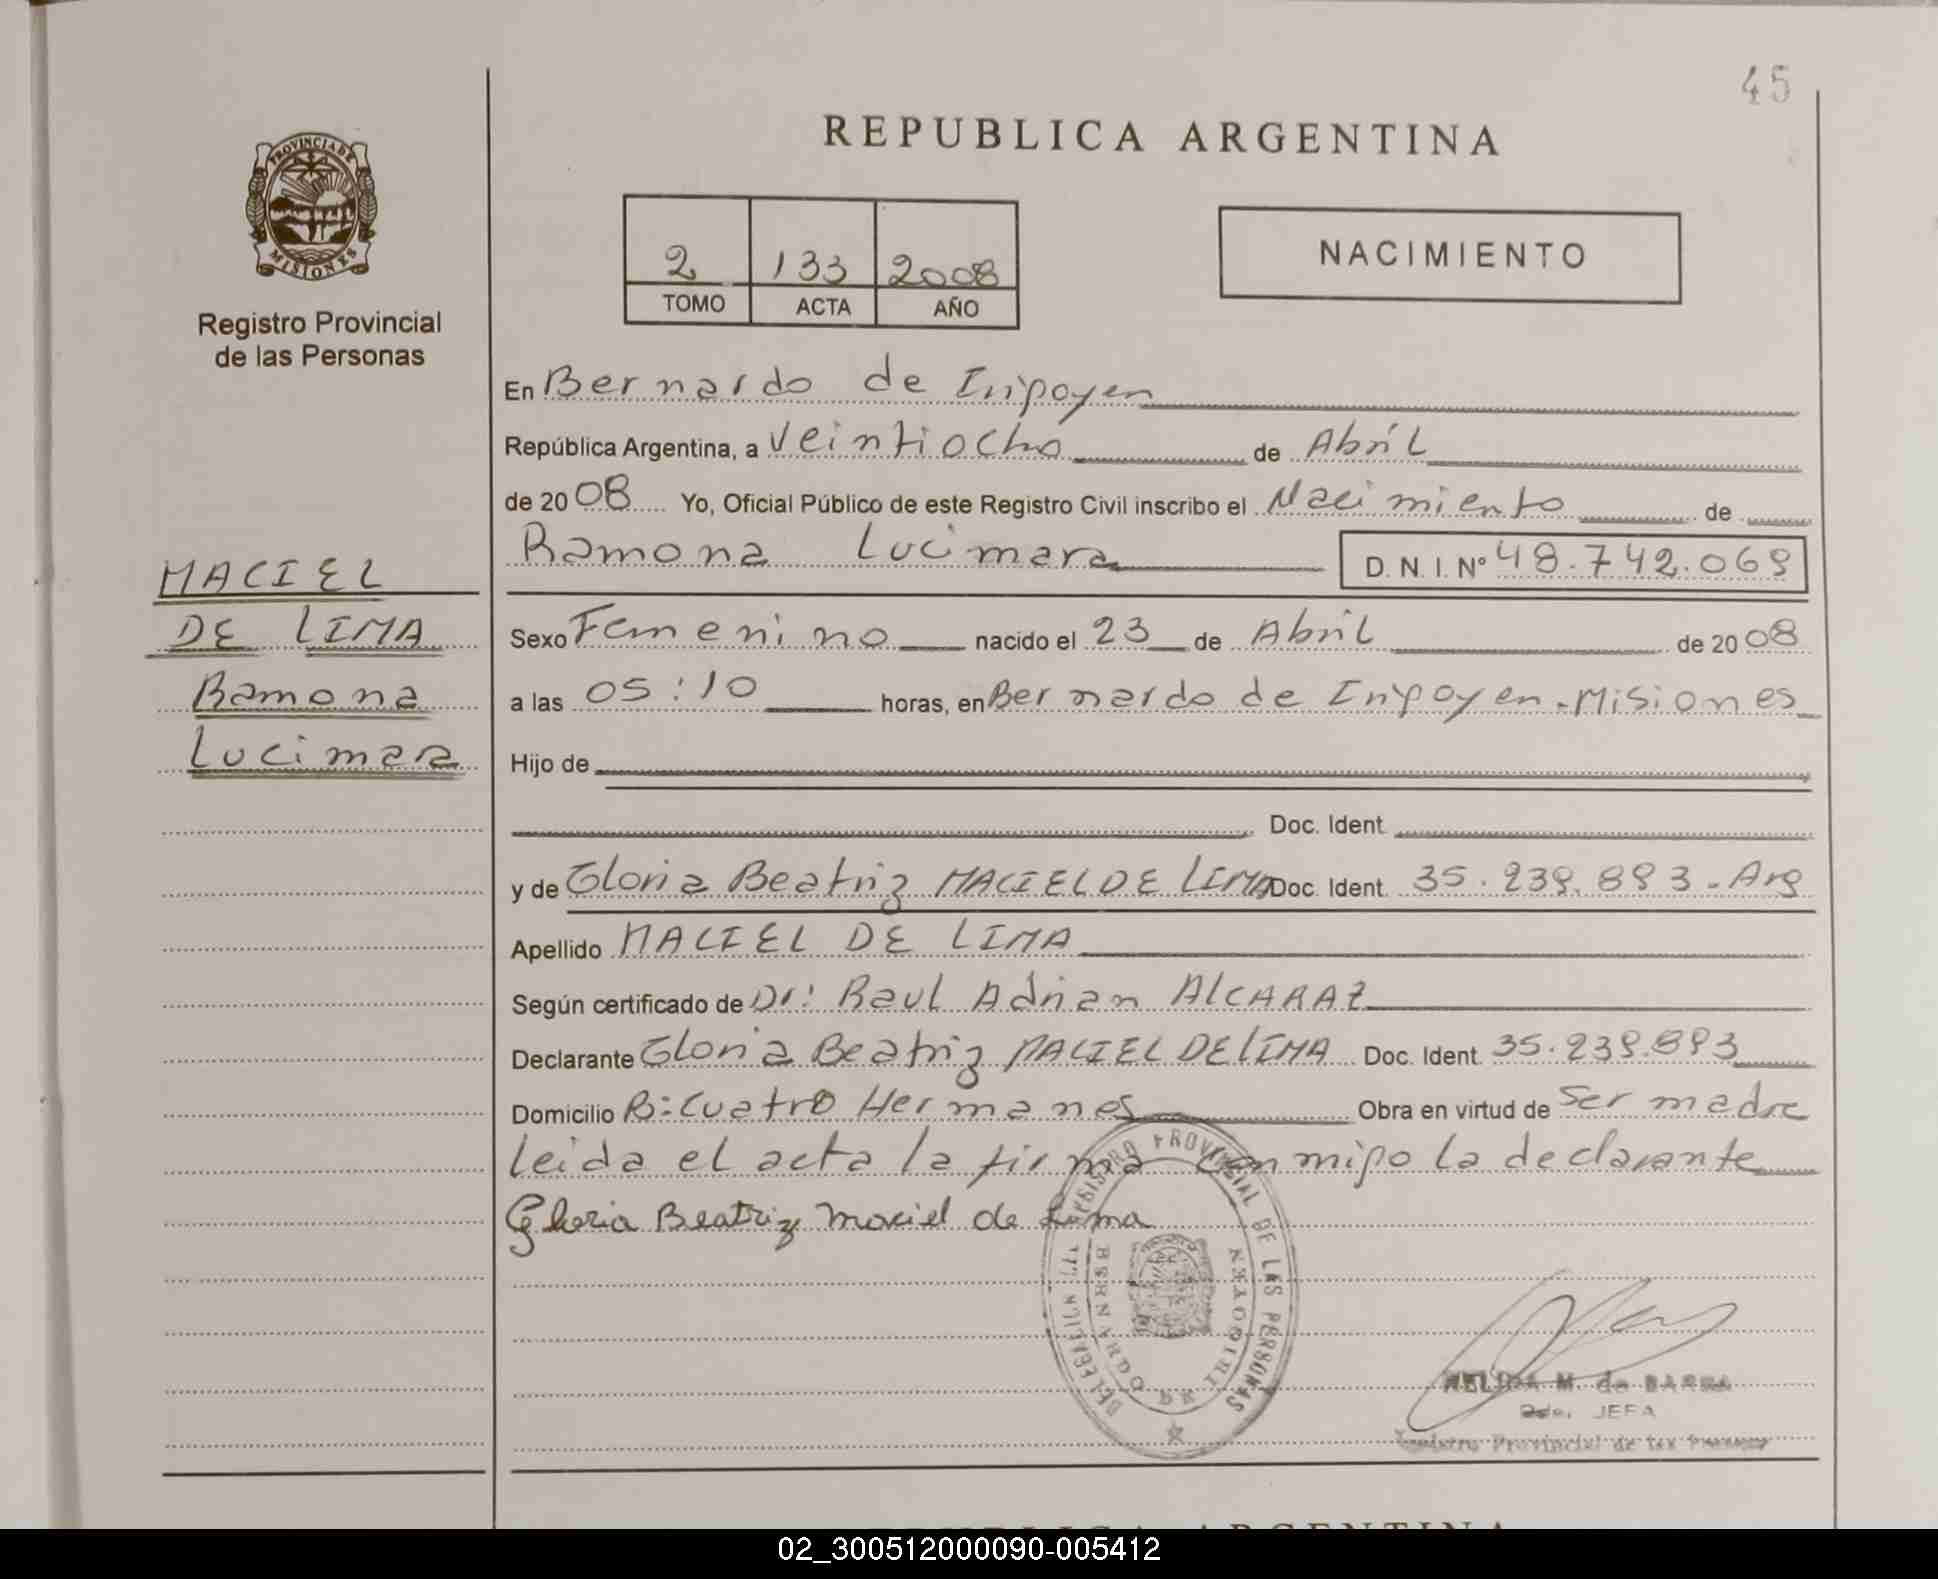 45
REPUBLICA ARGENTINA
PROVINCIA DE
MISIONES
Registro Provincial
de las Personas
2 133 2008
TOMO ACTA AÑO
NACIMIENTO
En Bernardo de Irigoyen
República Argentina, a Veintiocho de Abril
de 2008 Yo, Oficial Público de este Registro Civil inscribo el Nacimiento de
Ramona Lucimara D. N. I. Nº 48.742.069
MACIEL
DE LIMA
Ramona
Lucimara
Sexo Femenino nacido el 23 de Abril de 2008
a las 05:10 horas, en Bernardo de Irigoyen - Misiones
Hijo de
Doc. Ident.
y de Gloria Beatriz MACIEL DE LIMA Doc. Ident. 35.239.893 - Arg
Apellido MACIEL DE LIMA
Según certificado de Dr: Raul Adrian ALCARAZ
Declarante Gloria Beatriz MACIEL DE LIMA Doc. Ident. 35.239.893
Domicilio B: Cuatro Hermanes Obra en virtud de Ser madre
leida el acta la firma conmigo la declarante
Gloria Beatriz Maciel de Lima
REGISTRO PROVINCIAL DE LAS PERSONAS
DELEGACION
BERNARDO DE IRIGOYEN
NELIDA M. de BARRA
JEFA
Registro Provincial de las Personas
REPUBLICA ARGENTINA
02_300512000090-005412